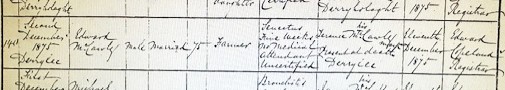 Derryloght daughter Derryloght 1875 Registrar
Second Senectus his
December Edward Five weeks Terence McCawly Eleventh Edward
1875 McCawly Male Married 75 Farmer no medical mark December Copeland
Derrylee attendant Present at death 1875 Registrar
Uncertified Derrylee
First
December Michael Bronchitis his